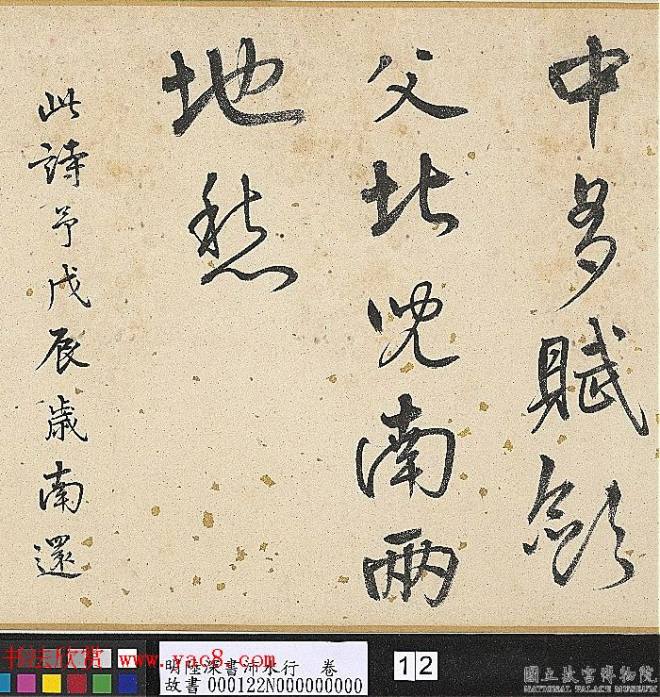 中多賦斂
父北兒南兩
地愁
此詩予戊辰歲南還
书法欣赏 www.yac8.com
明陸深書沛水行 卷
故書 000122N000000000
12
國立故宮博物院
NATIONAL PALACE MUSEUM